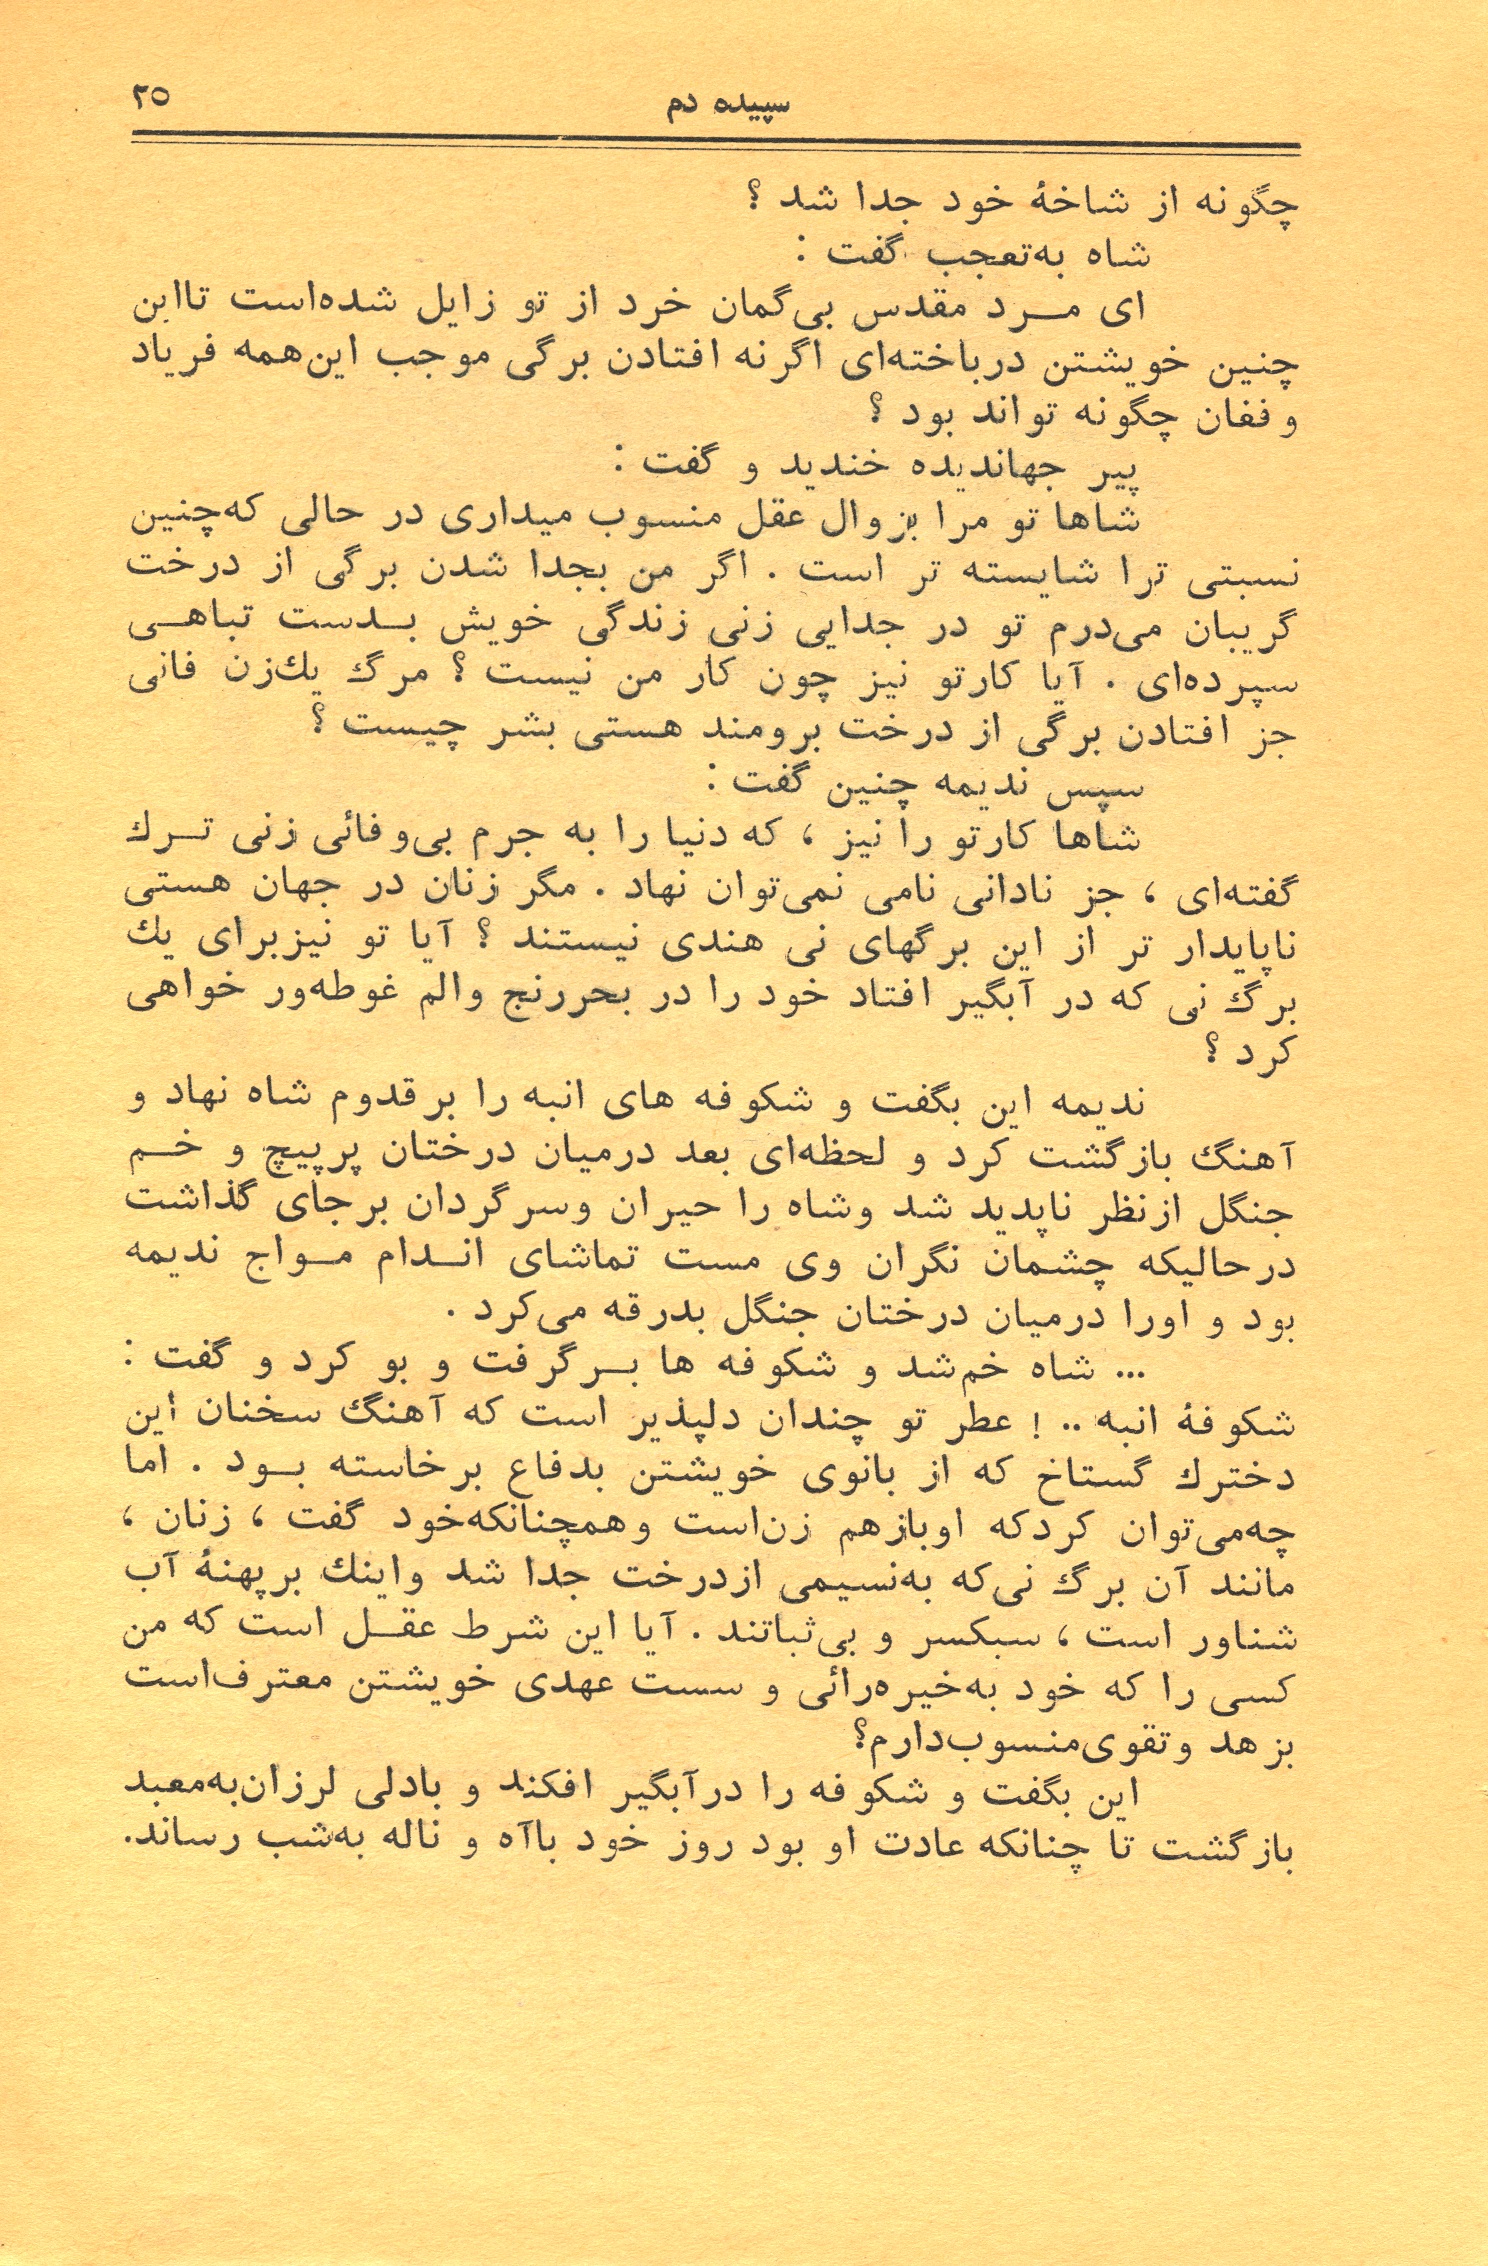 سپیده دم
۲۵
چگونه از شاخهٔ خود جدا شد ؟
شاه به‌تعجب گفت :
ای مــرد مقدس بی‌گمان خرد از تو زایل شده‌است تااین
چنین خویشتن درباخته‌ای اگرنه افتادن برگی موجب این‌همه فریاد
و فغان چگونه تواند بود ؟
پیر جهاندیده خندید و گفت :
شاها تو مرا بزوال عقل منسوب میداری در حالی که‌چنین
نسبتی ترا شایسته تر است . اگر من بجدا شدن برگی از درخت
گریبان می‌درم تو در جدایی زنی زندگی خویش بــدست تباهــی
سپرده‌ای . آیا کارتو نیز چون کار من نیست ؟ مرگ یك‌زن فانی
جز افتادن برگی از درخت برومند هستی بشر چیست ؟
سپس ندیمه چنین گفت :
شاها کارتو را نیز ، که دنیا را به جرم بی‌وفائی زنی تــرك
گفته‌ای ، جز نادانی نامی نمی‌توان نهاد . مگر زنان در جهان هستی
ناپایدار تر از این برگهای نی هندی نیستند ؟ آیا تو نیزبرای یك
برگ نی که در آبگیر افتاد خود را در بحررنج والم غوطه‌ور خواهی
کرد ؟
ندیمه این بگفت و شکوفه های انبه را برقدوم شاه نهاد و
آهنگ بازگشت کرد و لحظه‌ای بعد درمیان درختان پرپیچ و خــم
جنگل ازنظر ناپدید شد وشاه را حیران وسرگردان برجای گذاشت
درحالیکه چشمان نگران وی مست تماشای انــدام مــواج ندیمه
بود و اورا درمیان درختان جنگل بدرقه می‌کرد .
... شاه خم‌شد و شکوفه ها بــرگرفت و بو کرد و گفت :
شکوفهٔ انبه .. ! عطر تو چندان دلپذیر است که آهنگ سخنان این
دخترك گستاخ که از بانوی خویشتن بدفاع برخاسته بــود . اما
چه‌می‌توان کردکه اوبازهم زن‌است وهمچنانکه‌خود گفت ، زنان ،
مانند آن برگ نی‌که به‌نسیمی ازدرخت جدا شد واینك برپهنهٔ آب
شناور است ، سبکسر و بی‌ثباتند . آیا این شرط عقــل است که من
کسی را که خود به‌خیره‌رائی و سست عهدی خویشتن معترف‌است
بزهد وتقوی‌منسوب‌دارم؟
این بگفت و شکوفه را درآبگیر افکند و بادلی لرزان‌به‌معبد
بازگشت تا چنانکه عادت او بود روز خود باآه و ناله به‌شب رساند.